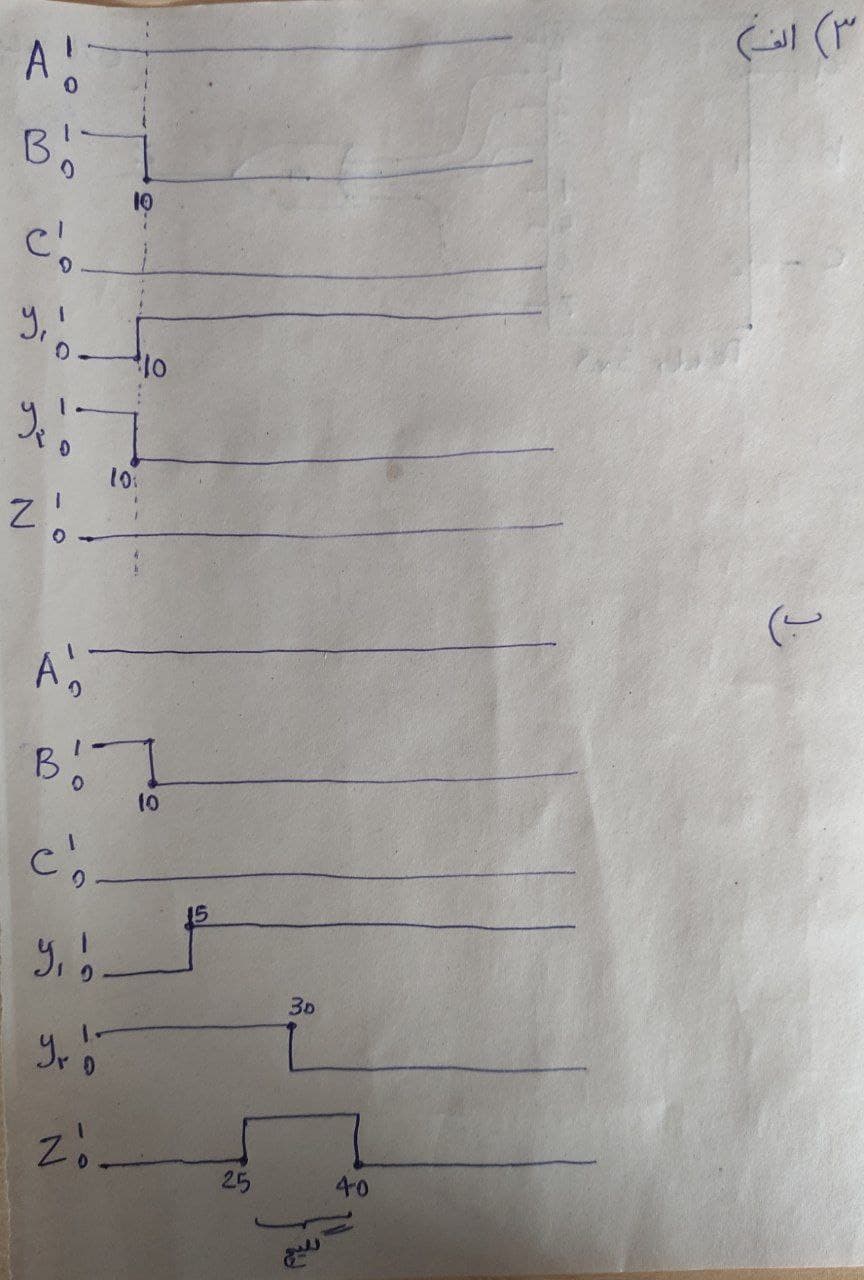 ۳) الف)
A 1
0
B 1
0
10
C 1
0
y₁ 1
0
10
y₂ 1
0
10
Z 1
0
ب)
A 1
0
B 1
0
10
C 1
0
y₁ 1
0
15
30
y₂ 1
0
Z 1
0
25 40